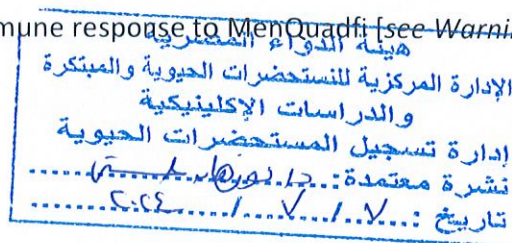 mune response to MenQuadfi [see Warni
هيئة الدواء المصرية
الإدارة المركزية للمستحضرات الحيوية والمبتكرة
والدراسات الإكلينيكية
إدارة تسجيل المستحضرات الحيوية
نشرة معتمدة: د.نورهان
تاريخ: ٧ / ٧ / ٢٠٢٤